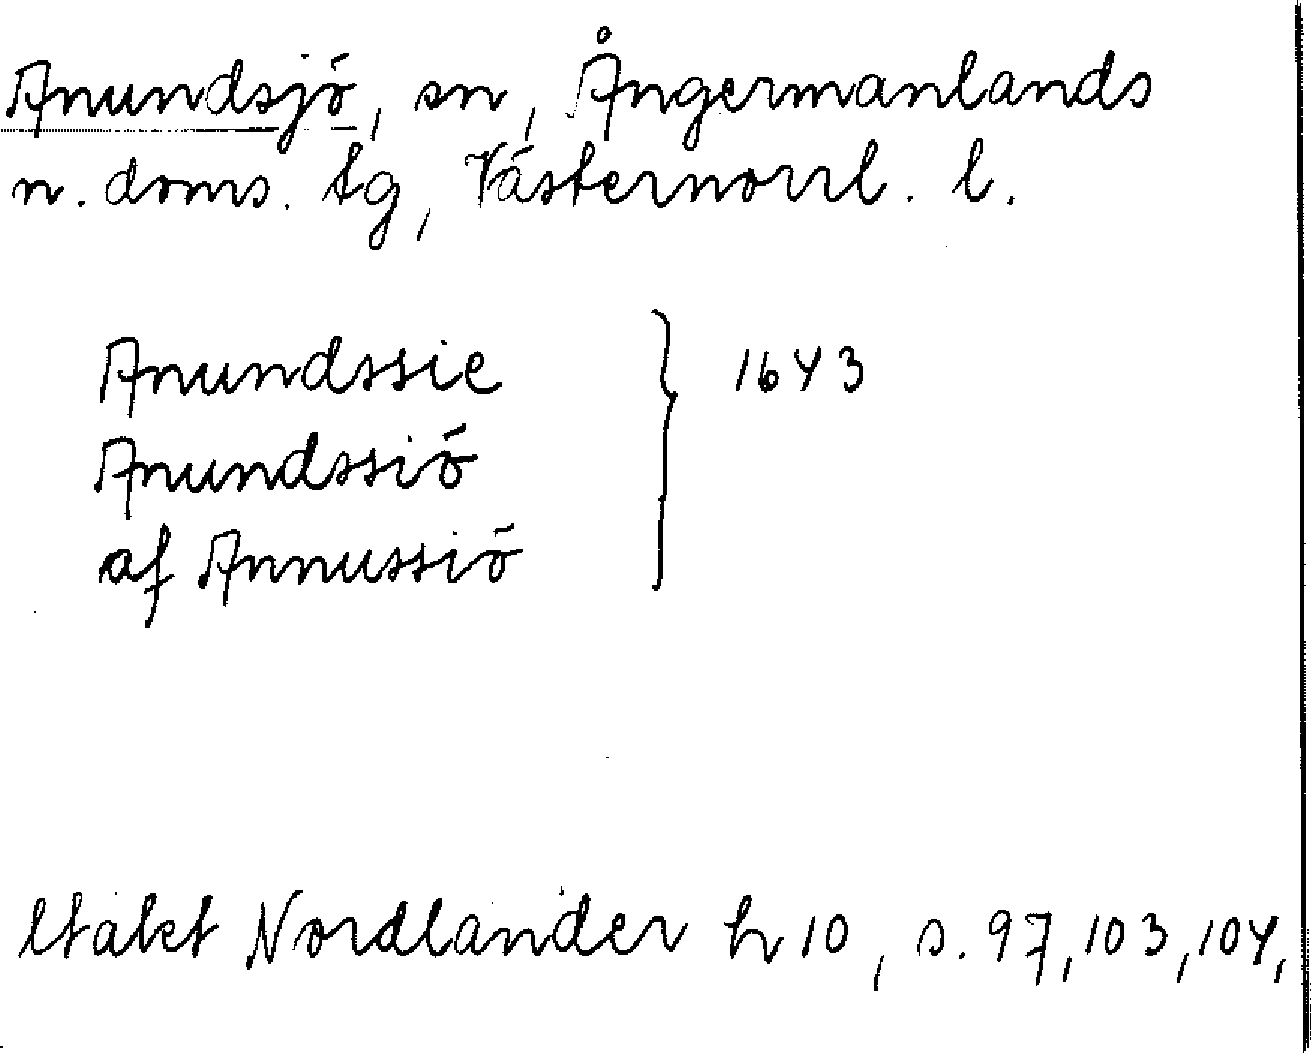 Anundsjö, sn, Ångermanlands
n. doms. tg, Västernorrl. l.
Anundssie } 1643
Anundssiö
af Annussiö
Utakt Nordlander h 10, s. 97, 103, 104,